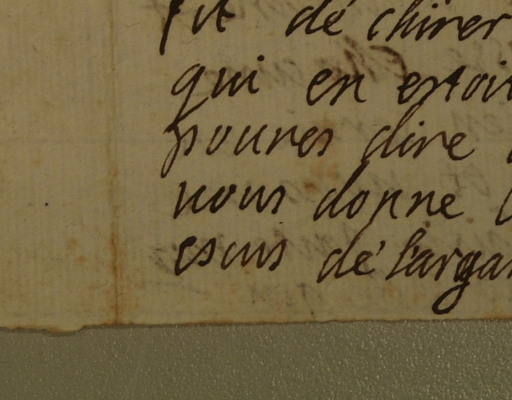 fit dé chirer
qui en estoit
poures dire
nous donne
escus dé l'argan